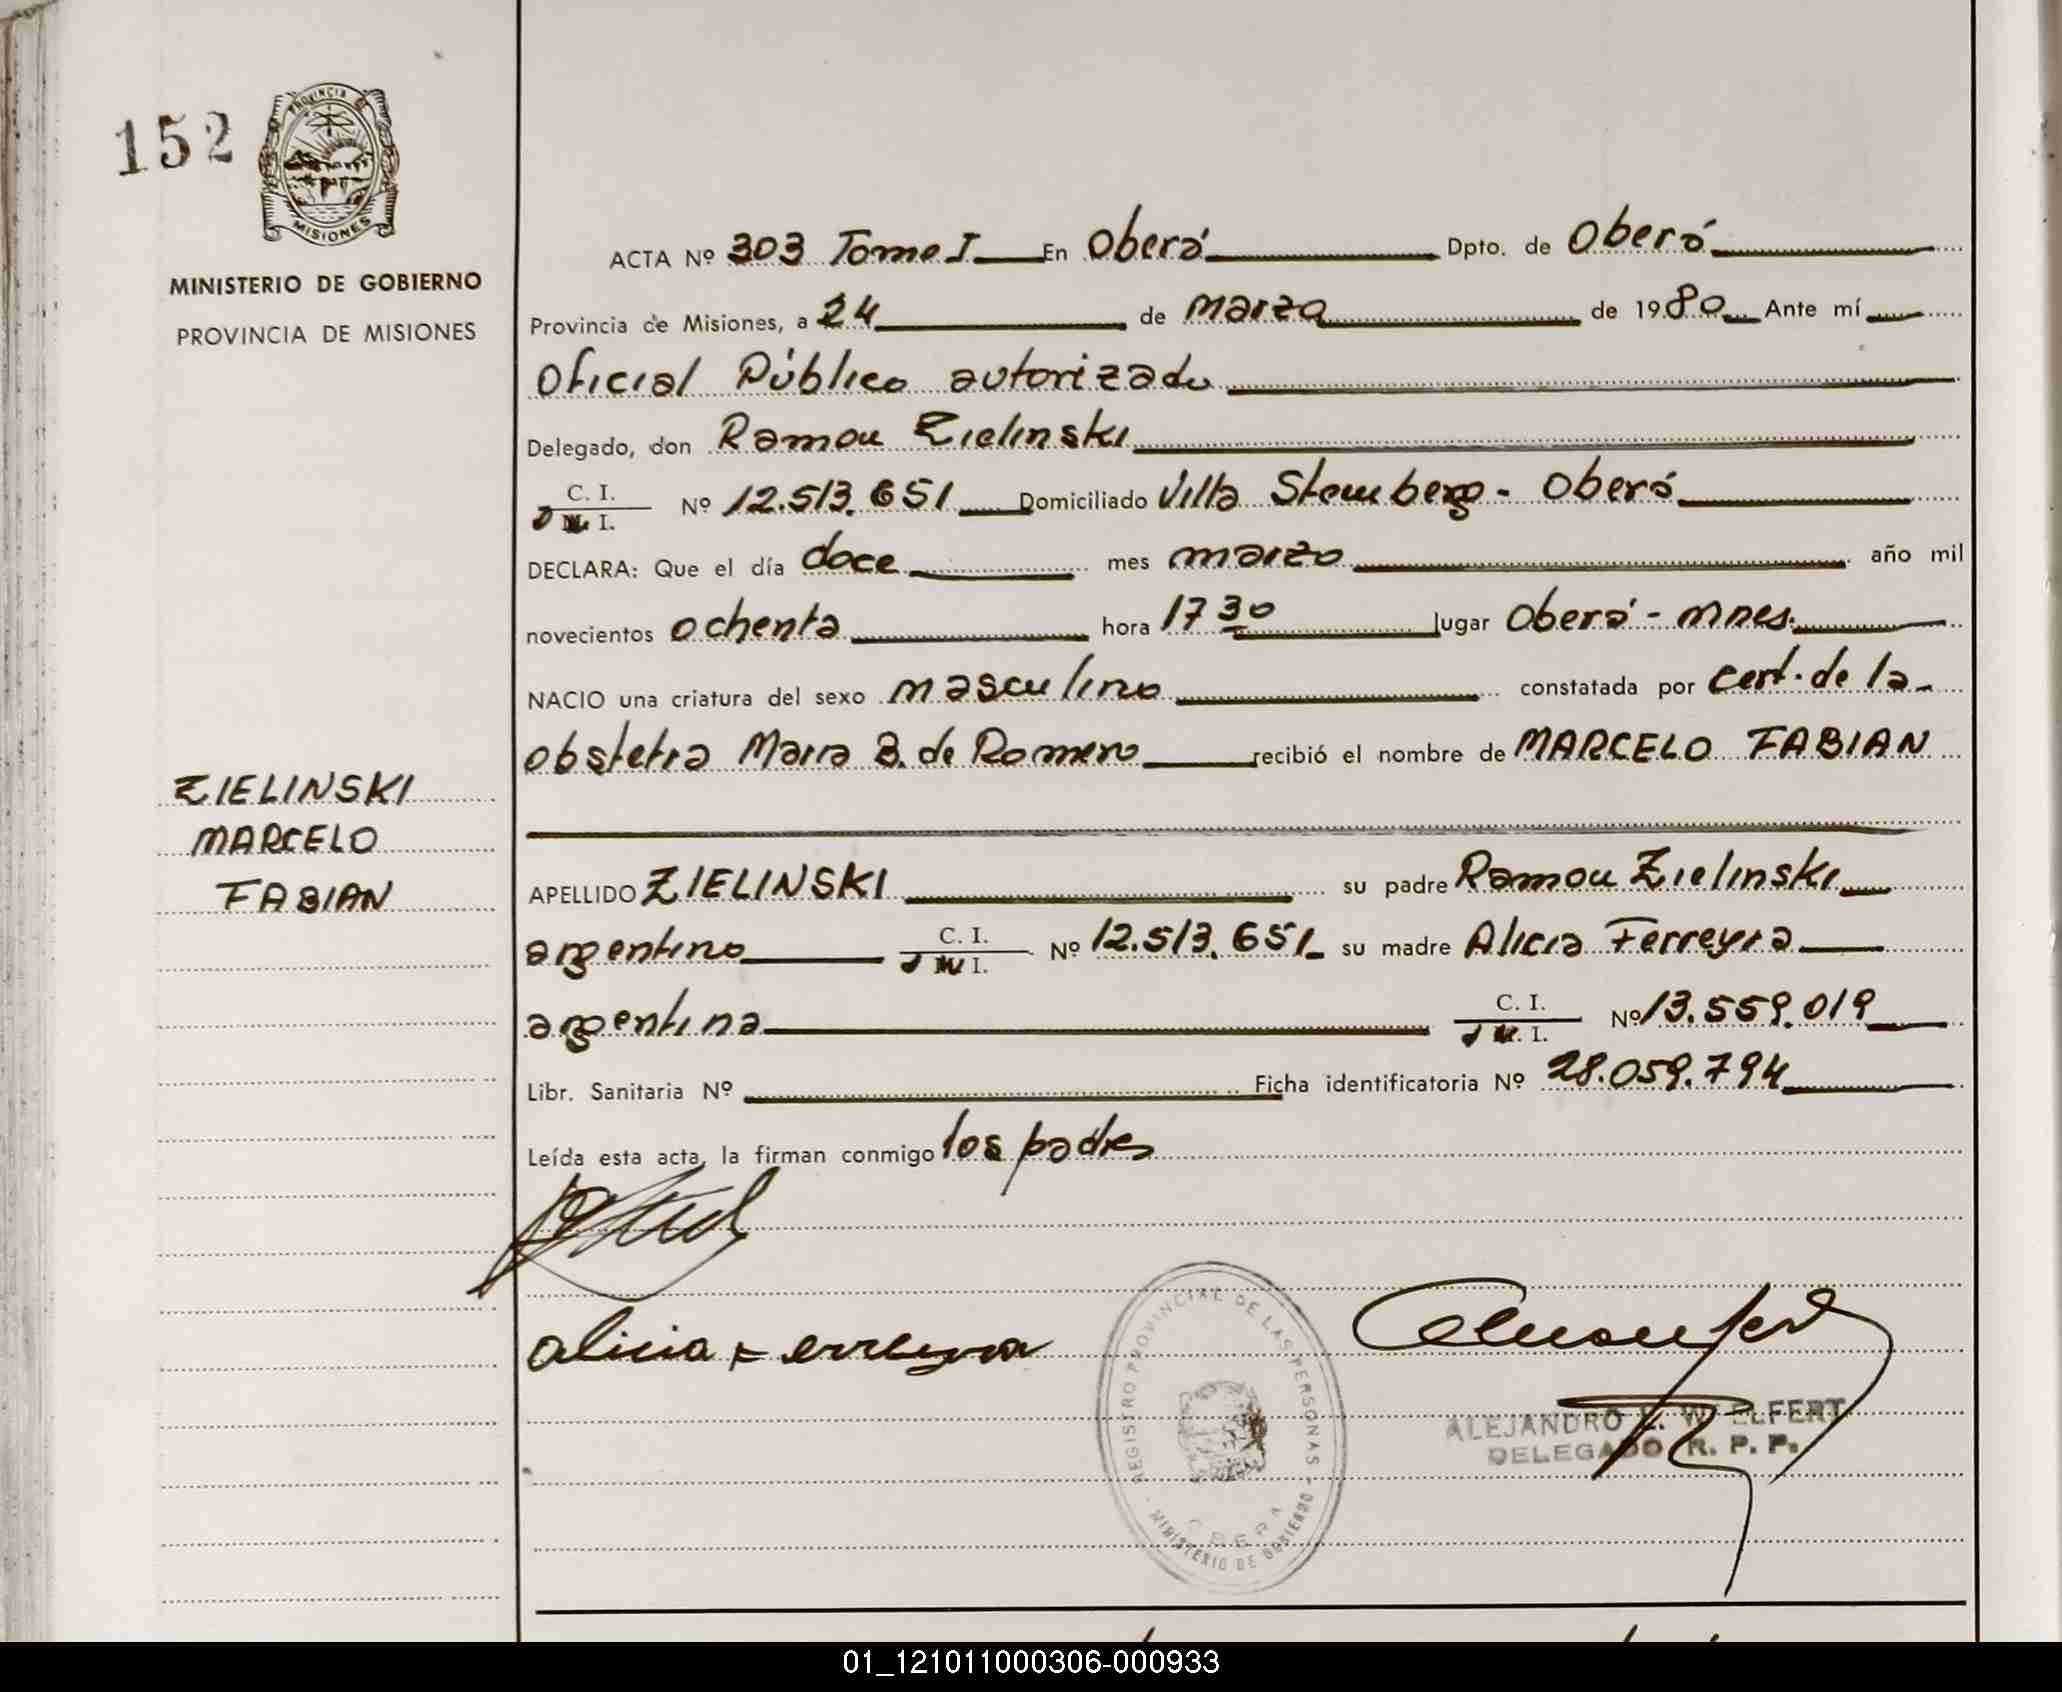 152
PROVINCIA DE
MISIONES
MINISTERIO DE GOBIERNO
PROVINCIA DE MISIONES
ZIELINSKI
MARCELO
FABIAN
ACTA Nº 303 Tomo I En Oberá Dpto. de Oberá
Provincia de Misiones, a 24 de marzo de 1980 Ante mí
Oficial Público autorizado
Delegado, don Ramon Zielinski
C. I. D. N. I. Nº 12.513.651 Domiciliado Villa Stemberg - Oberá
DECLARA: Que el día doce mes marzo año mil
novecientos ochenta hora 17 30 lugar Oberá - Mnes.
NACIO una criatura del sexo masculino constatada por cert. de la
obstetra Maria B. de Romero recibió el nombre de MARCELO FABIAN
APELLIDO ZIELINSKI su padre Ramon Zielinski
argentino C. I. D. N. I. Nº 12.513.651 su madre Alicia Ferreyra
argentina C. I. D. N. I. Nº 13.559.019
Libr. Sanitaria Nº Ficha identificatoria Nº 28.059.794
Leída esta acta, la firman conmigo los padres
alicia Ferreyra
REGISTRO PROVINCIAL DE LAS PERSONAS
OBERA
MINISTERIO DE GOBIERNO
ALEJANDRO E. WELFERT
DELEGADO R. P. P.
01_121011000306-000933